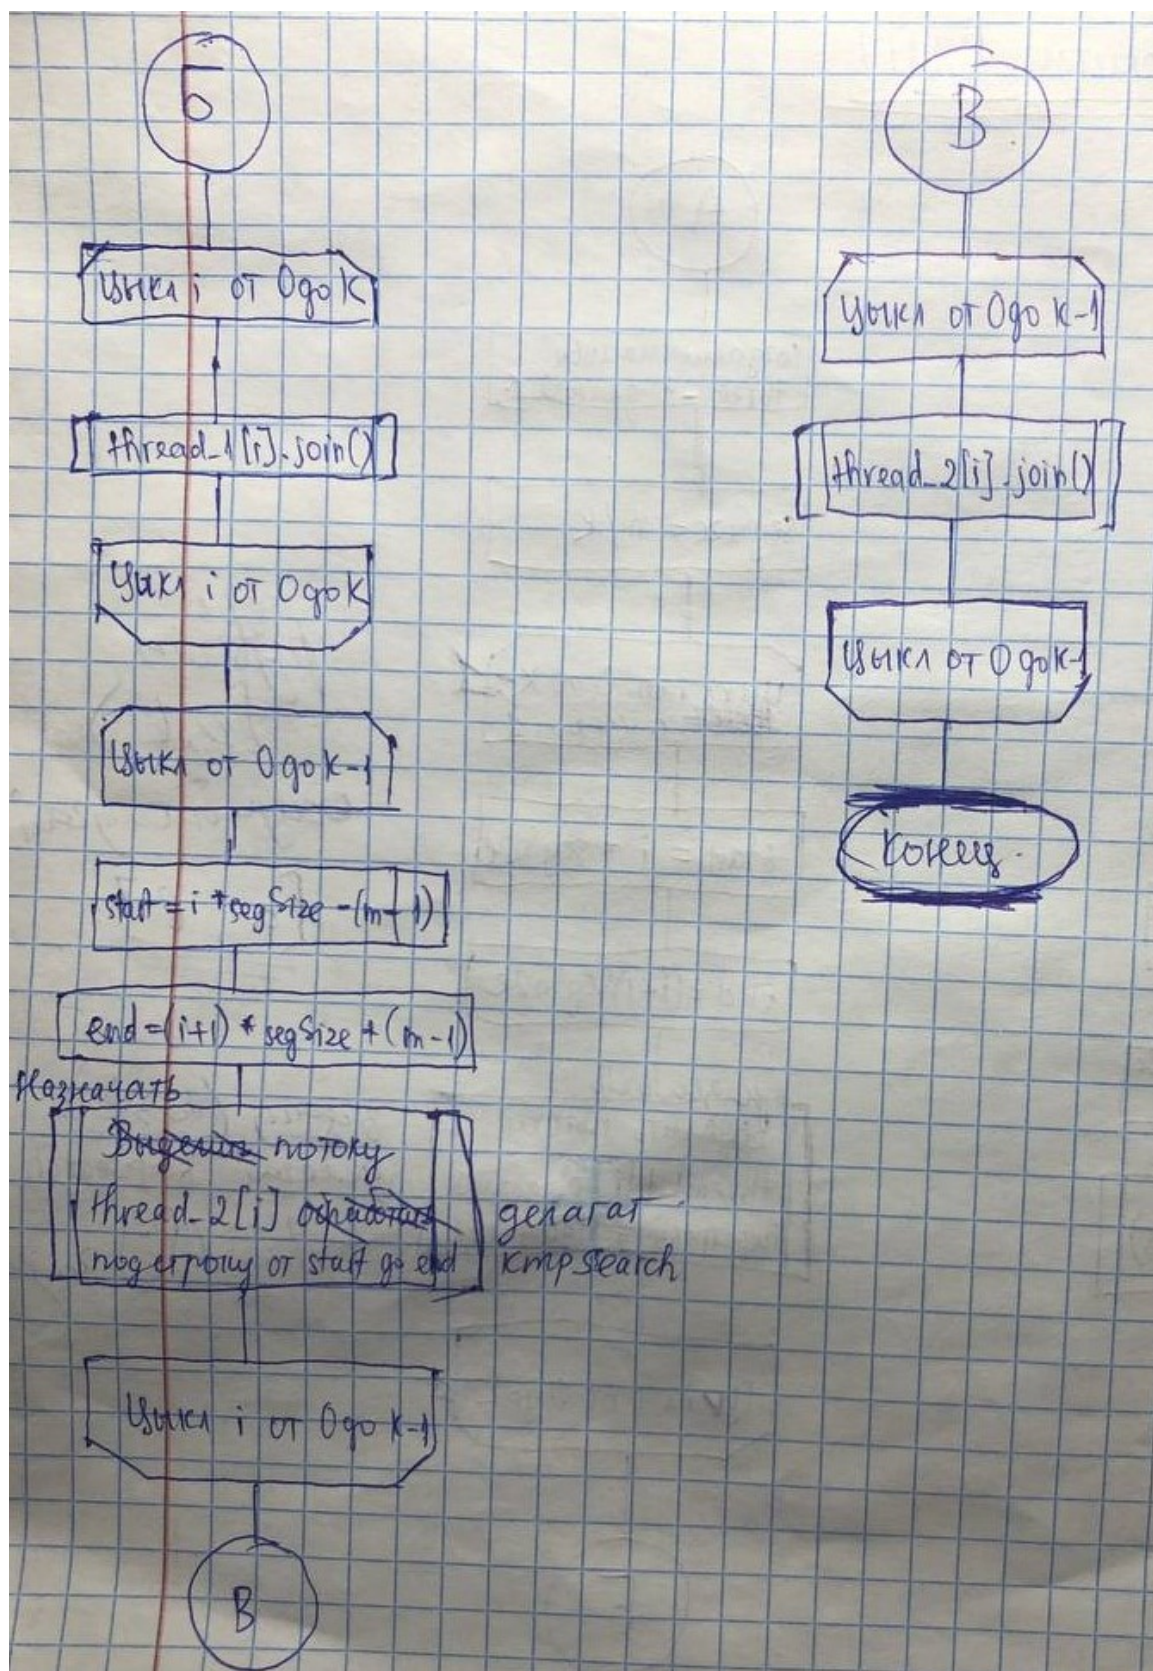 Б
Цыкл i от 0 до K
thread_1[i].join()
Цыкл i от 0 до K
Цыкл от 0 до K-1
start = i * segSize - (m-1)
end = (i+1) * segSize + (m-1)
Назначать
Выделить потоку
thread_2[i] обработать делагат
подстроку от start до end kmpsearch
Цыкл i от 0 до K-1
В
В
Цыкл от 0 до K-1
thread_2[i].join()
Цыкл от 0 до K-1
Конец.